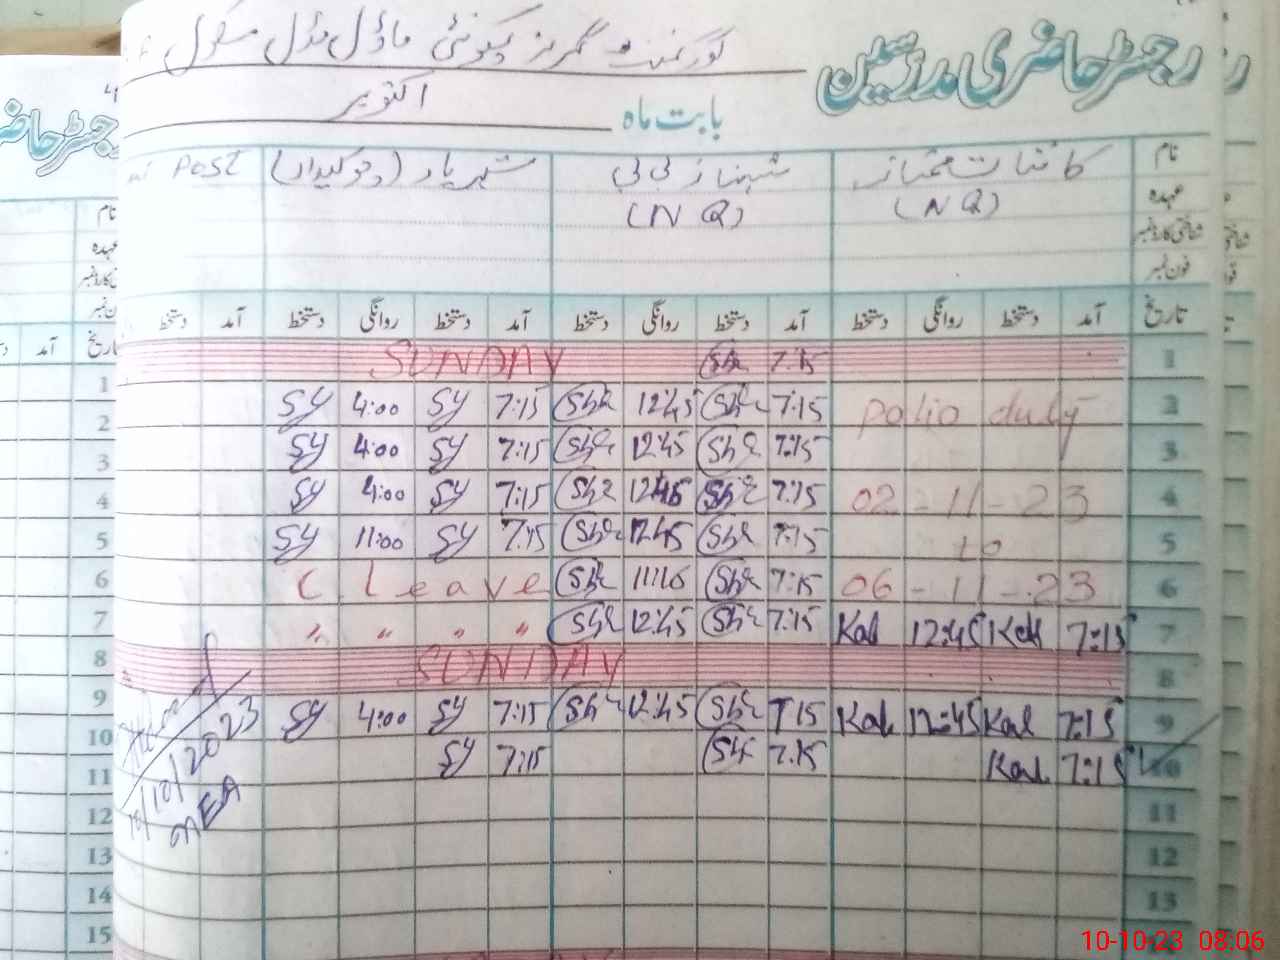 رجسٹر حاضری مدرسین گورنمنٹ گرلز کمیونٹی ماڈل سکول
بابت ماہ اکتوبر
نام کائنات ممتاز شہناز بی بی شہریار (چوکیدار) Post
عہدہ (NQ) (NQ)
شناختی کارڈ نمبر
فون نمبر
تاریخ آمد دستخط روانگی دستخط آمد دستخط روانگی دستخط آمد دستخط روانگی دستخط آمد دستخط
1 7:15 She SUNDAY
2 Polio duty 7:15 She 12:45 She 7:15 Sy 4:00 Sy
3 7:15 She 12:45 She 7:15 Sy 4:00 Sy
4 02-11-23 7:15 She 12:45 She 7:15 Sy 4:00 Sy
5 to 7:15 She 12:45 She 7:15 Sy 11:00 Sy
6 06-11-23 7:15 She 11:10 She C Leave
7 7:15 Kal 12:45 Kal 7:15 She 12:45 She " " " "
8 SUNDAY
9 7:15 Kal 12:45 Kal 7:15 She 12:45 She 7:15 Sy 4:00 Sy
10 7:15 Kal 7:15 She 7:15 Sy
11
12
13
10/10/2023
MEA
رجسٹر حاضری
نام
عہدہ
تاریخ آمد
1
2
3
4
5
6
7
8
9
10
11
12
13
14
15
10-10-23 08:06